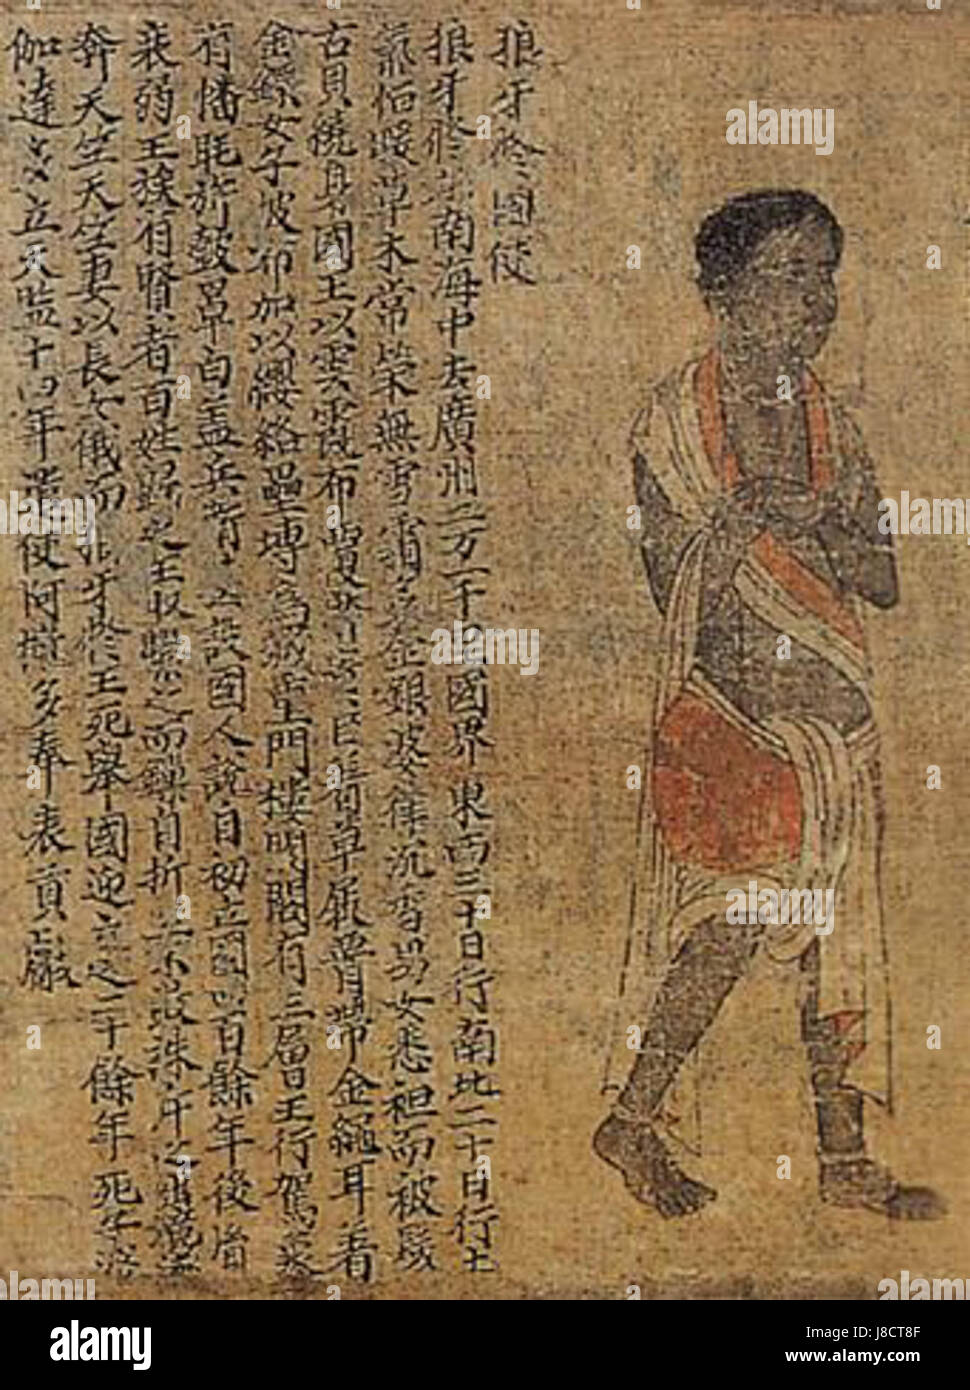 狼牙脩國使
狼牙脩南海中去廣州二万一千里國界東西三十日行南北二十日行土
氣暖草木常榮無雪霜多金銀婆律沉香男女悉袒而被髮
古貝繞身國王以雲霞布覆草屐帶金繩耳著
金鐶女子披布加以纓絡壘塼為城重門樓閣有三層王行駕象
有幡毦旂鼓罩白蓋兵設國人說曰初立國以百餘年後嗣
衰弱王族有賢者百姓歸之王收之而鏁自折不敢殊斥之出境遂
奔天竺天竺妻以長女俄而狼牙脩王死舉國迎立之二十餘年死子婆
伽達多立天監十四年遣使阿撤多奉表貢獻
alamy
Image ID: J8CT8F
www.alamy.com